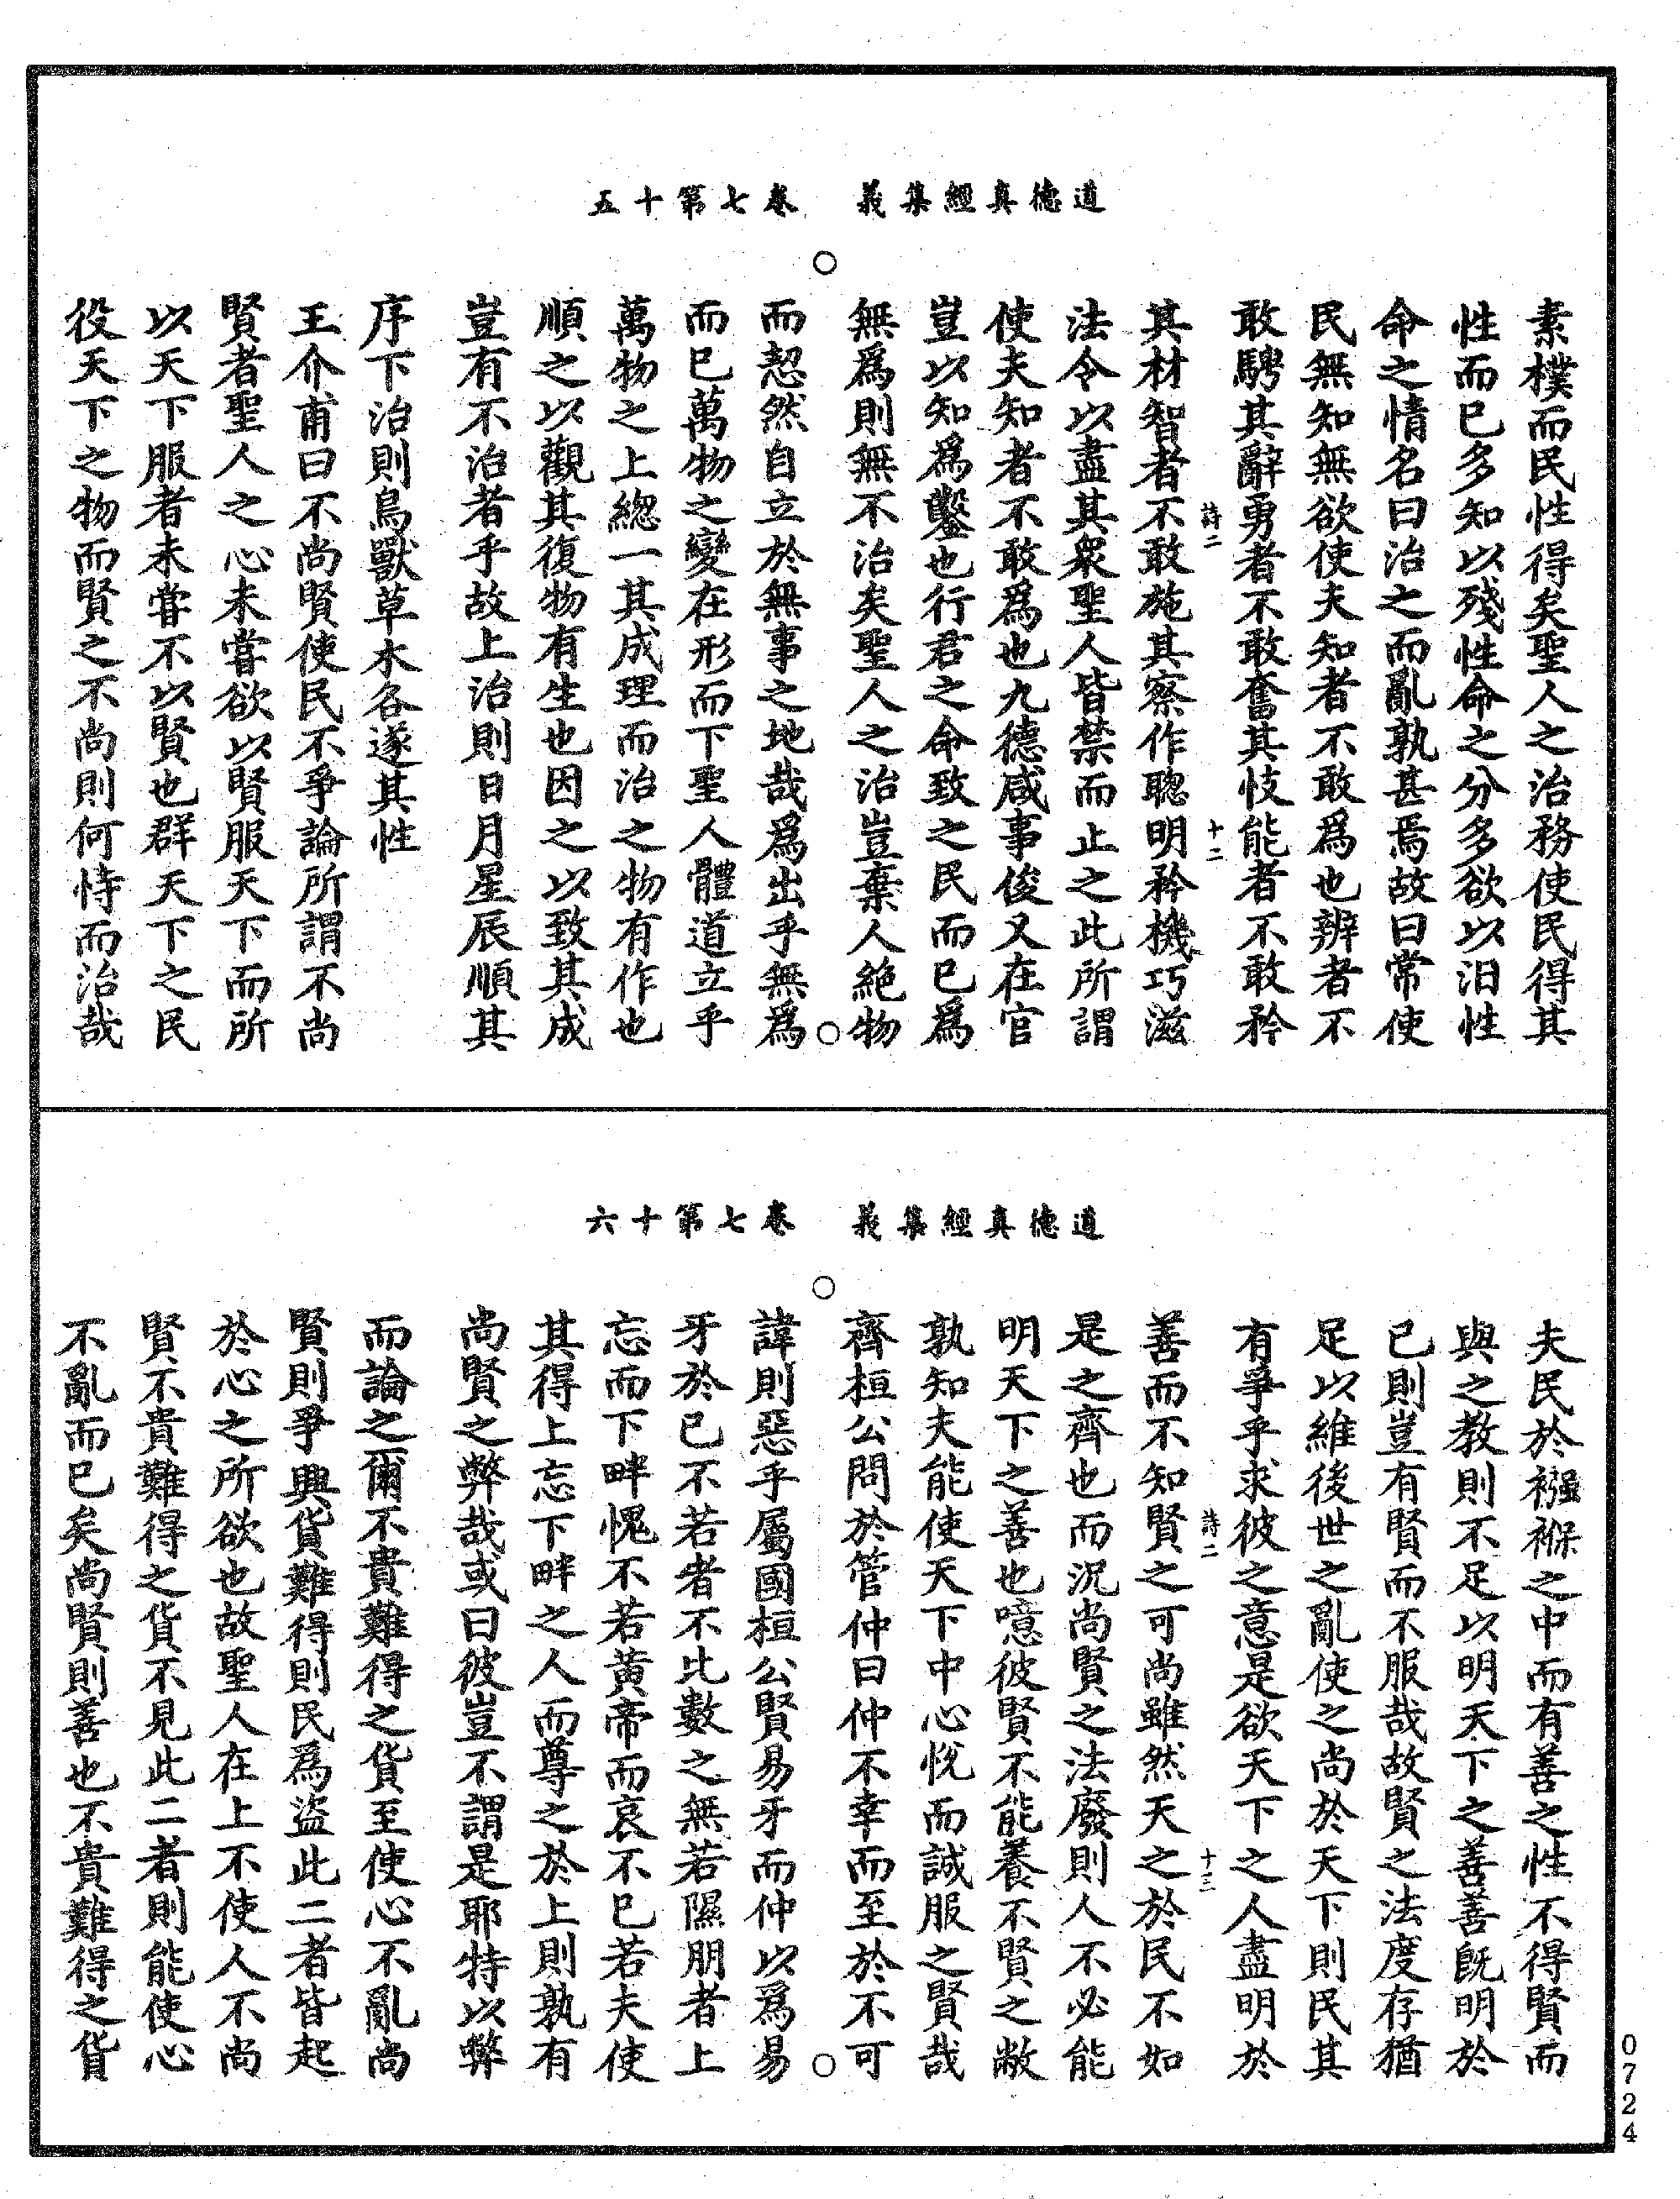 道德真經集義　卷七第十五
素樸而民性得矣聖人之治務使民得其
性而已多知以殘性命之分多欲以汨性
命之情名曰治之而亂孰甚焉故曰常使
民無知無欲使夫知者不敢爲也辨者不
敢騁其辭勇者不敢奮其忮能者不敢矜
詩二　十二
其材智者不敢施其察作聰明矜機巧滋
法令以盡其衆聖人皆禁而止之此所謂
使夫知者不敢爲也九德咸事俊乂在官
豈以知爲鑿也行君之命致之民而已爲
無爲則無不治矣聖人之治豈棄人絶物
而恝然自立於無事之地哉爲出乎無爲
而已萬物之變在形而下聖人體道立乎
萬物之上總一其成理而治之物有作也
順之以觀其復物有生也因之以致其成
豈有不治者乎故上治則日月星辰順其
序下治則鳥獸草木各遂其性
王介甫曰不尚賢使民不爭論所謂不尚
賢者聖人之心未嘗欲以賢服天下而所
以天下服者未嘗不以賢也群天下之民
役天下之物而賢之不尚則何恃而治哉
道德真經集義　卷七第十六
夫民於襁褓之中而有善之性不得賢而
與之教則不足以明天下之善善既明於
已則豈有賢而不服哉故賢之法度存猶
足以維後世之亂使之尚於天下則民其
有爭乎求彼之意是欲天下之人盡明於
詩二　十三
善而不知賢之可尚雖然天之於民不如
是之齊也而況尚賢之法廢則人不必能
明天下之善也噫彼賢不能養不賢之敝
孰知夫能使天下中心悅而誠服之賢哉
齊桓公問於管仲曰仲不幸而至於不可
諱則惡乎屬國桓公賢易牙而仲以爲易
牙於已不若者不比數之無若隰朋者上
忘而下畔愧不若黃帝而哀不已若夫使
其得上忘下畔之人而尊之於上則孰有
尚賢之弊哉或曰彼豈不謂是耶特以弊
而論之爾不貴難得之貨至使心不亂尚
賢則爭興貨難得則民爲盜此二者皆起
於心之所欲也故聖人在上不使人不尚
賢不貴難得之貨不見此二者則能使心
不亂而已矣尚賢則善也不貴難得之貨
0724